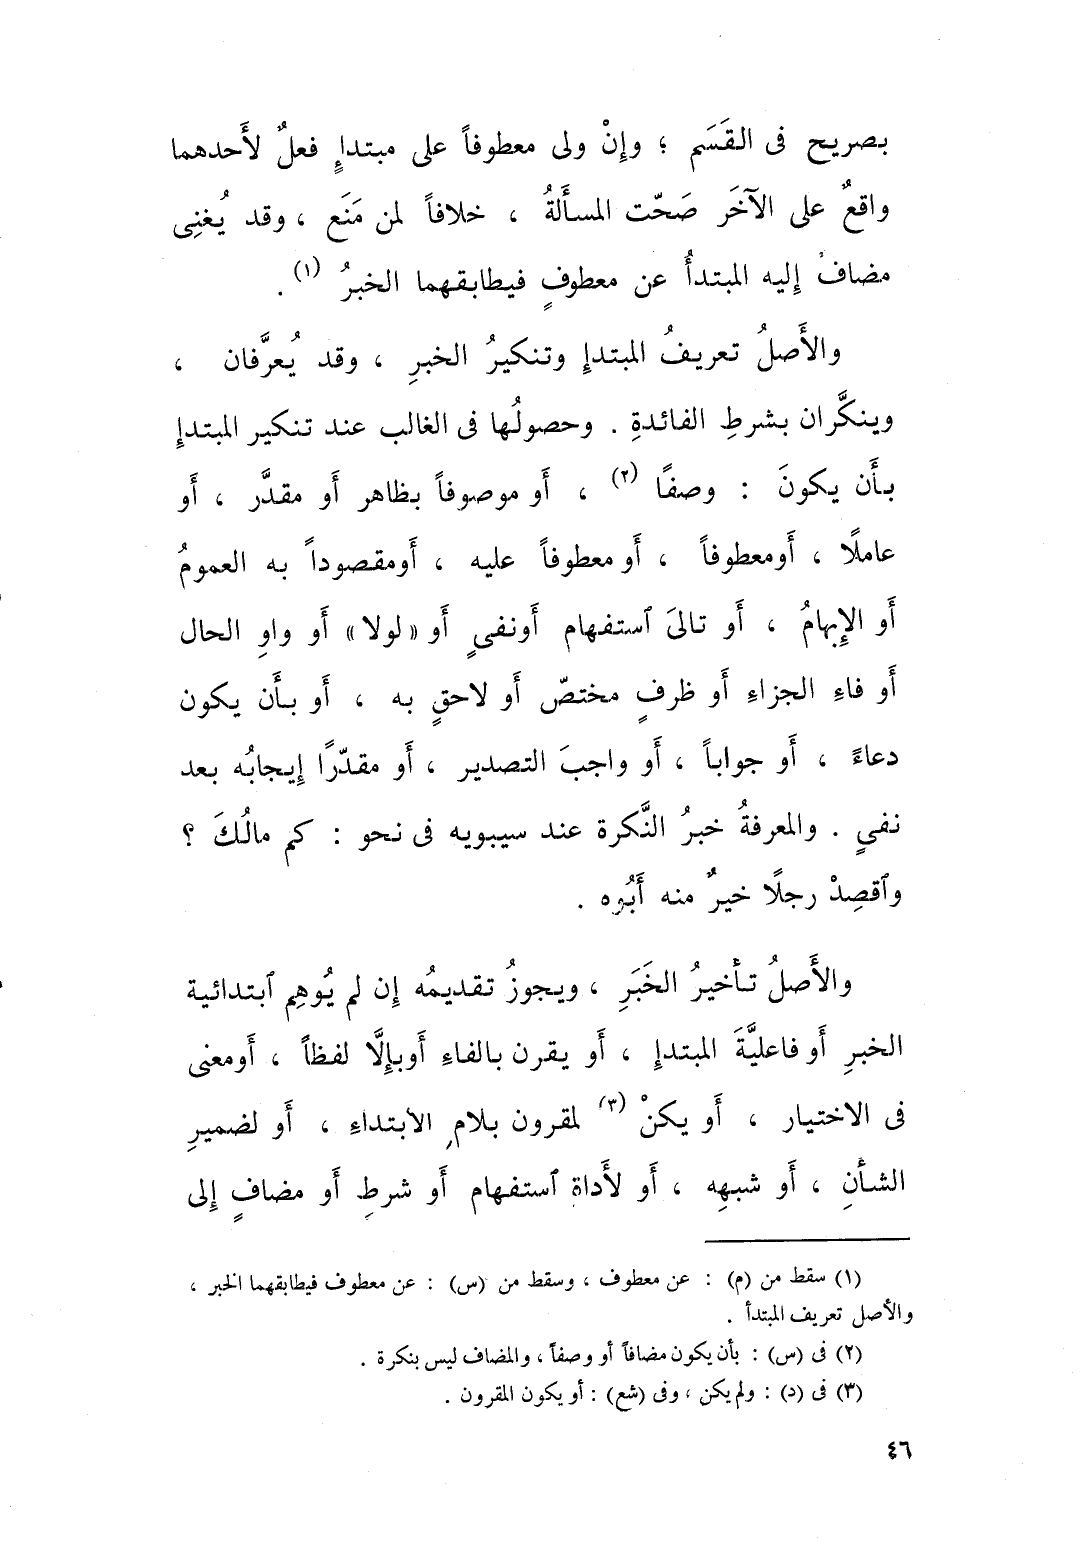 بصريح فى القَسَم ؛ وإنْ ولى معطوفاً على مبتدإٍ فعلٌ لأَحدهما
واقعٌ على الآخَر صَحّت المسأَلةُ ، خلافاً لمن مَنَع ، وقد يُغنِى
مضافٌ إليه المبتدأُ عن معطوفٍ فيطابقهما الخبرُ (١) .
والأَصلُ تعريفُ المبتدإِ وتنكيرُ الخبرِ ، وقد يُعرَّفان ،
وينكَّران بشرطِ الفائدةِ . وحصولُها فى الغالب عند تنكير المبتدإِ
بأَن يكونَ : وصفًا (٢) ، أَو موصوفاً بظاهر أَو مقدَّر ، أَو
عاملًا ، أَومعطوفاً ، أَو معطوفاً عليه ، أَومقصوداً به العمومُ
أَو الإِبهامُ ، أَو تالىَ ٱستفهام أَونفىٍ أَو «لولا» أَو واوِ الحال
أَو فاءِ الجزاءِ أَو ظرفٍ مختصّ أَو لاحقٍ به ، أَو بأَن يكون
دعاءً ، أَو جواباً ، أَو واجبَ التصدير ، أَو مقدّرًا إيجابُه بعد
نفىٍ . والمعرفةُ خبرُ النَّكرة عند سيبويه فى نحو : كم مالُكَ ؟
وٱقصِدْ رجلًا خيرٌ منه أَبُوه .
والأَصلُ تأخيرُ الخَبَرِ ، ويجوزُ تقديمُه إن لم يُوهِم ٱبتدائية
الخبرِ أَو فاعليَّةَ المبتدإِ ، أَو يقرن بالفاءِ أَوبإِلَّا لفظاً ، أَومعنى
فى الاختيار ، أَو يكنْ (٣) لمقرون بلامِ الابتداءِ ، أَو لضميرِ
الشأنِ ، أَو شبهِه ، أَو لأَداةِ ٱستفهام أَو شرطِ أَو مضافٍ إلى
(١) سقط من (م) : عن معطوف ، وسقط من (س) : عن معطوف فيطابقهما الخبر ،
والأصل تعريف المبتدأ .
(٢) فى (س) : بأن يكون مضافاً أو وصفاً ، والمضاف ليس بنكرة .
(٣) فى (د) : ولم يكن ، وفى (شع) : أو يكون المقرون .
٤٦